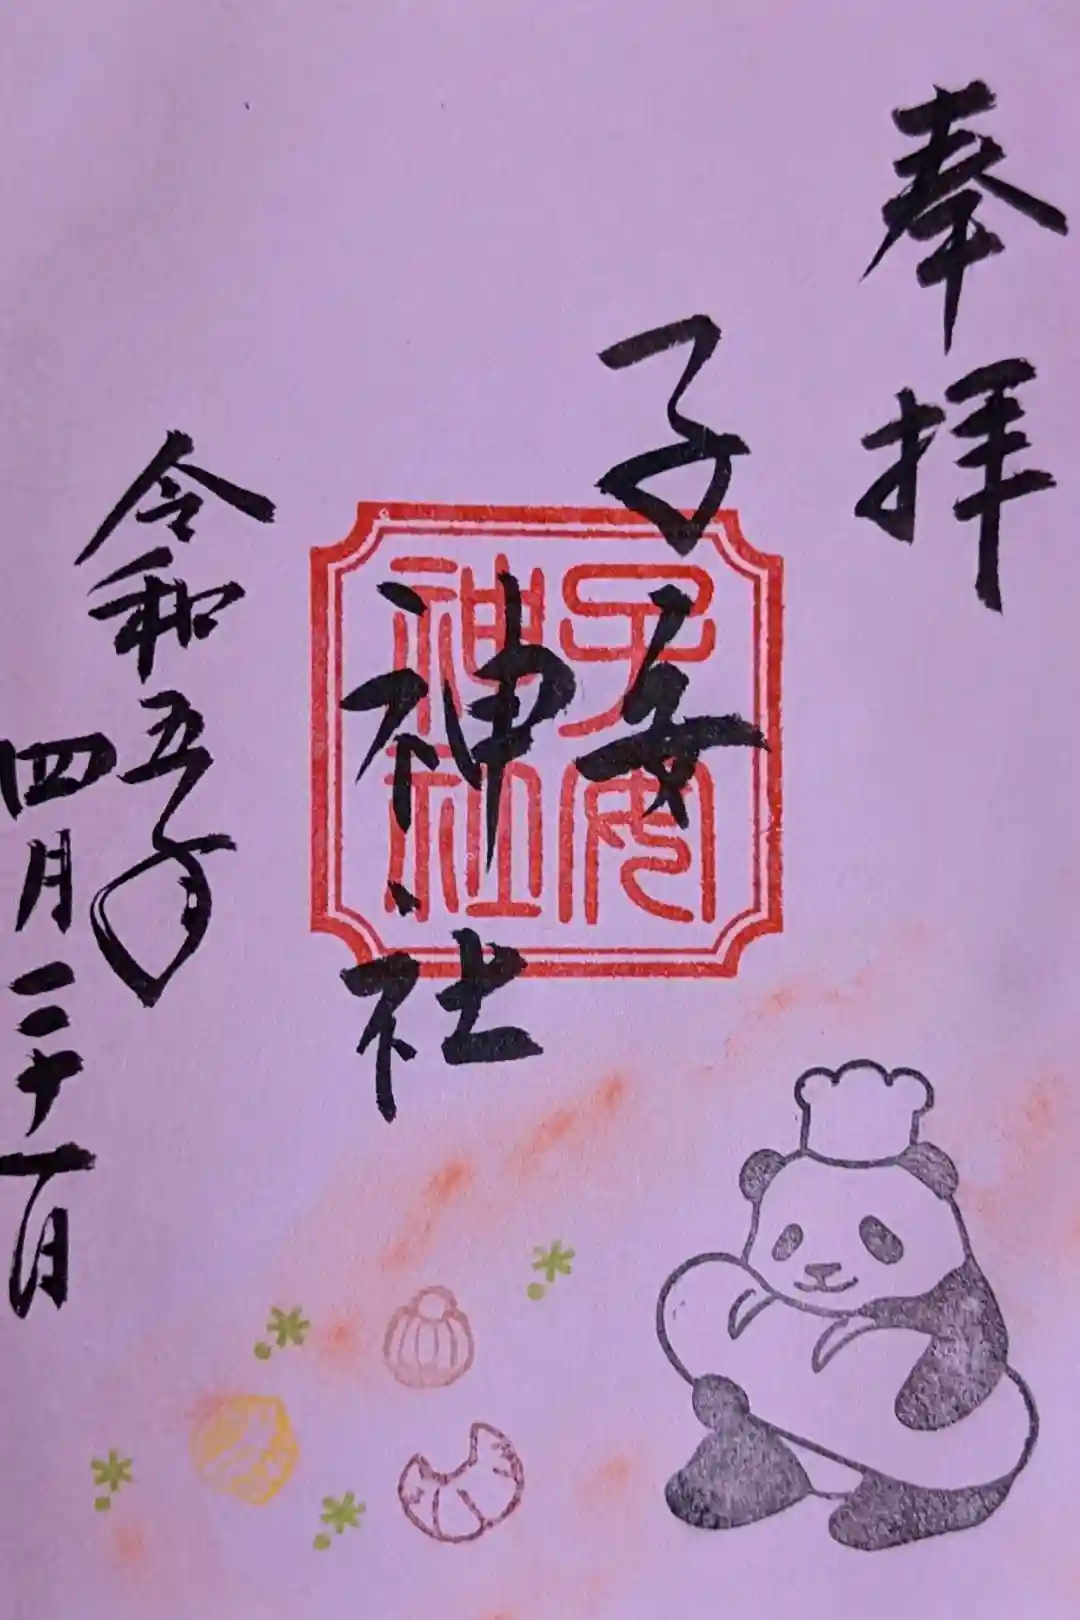 奉拝
子安
神社
子安
神社
令和五年
四月二十一日